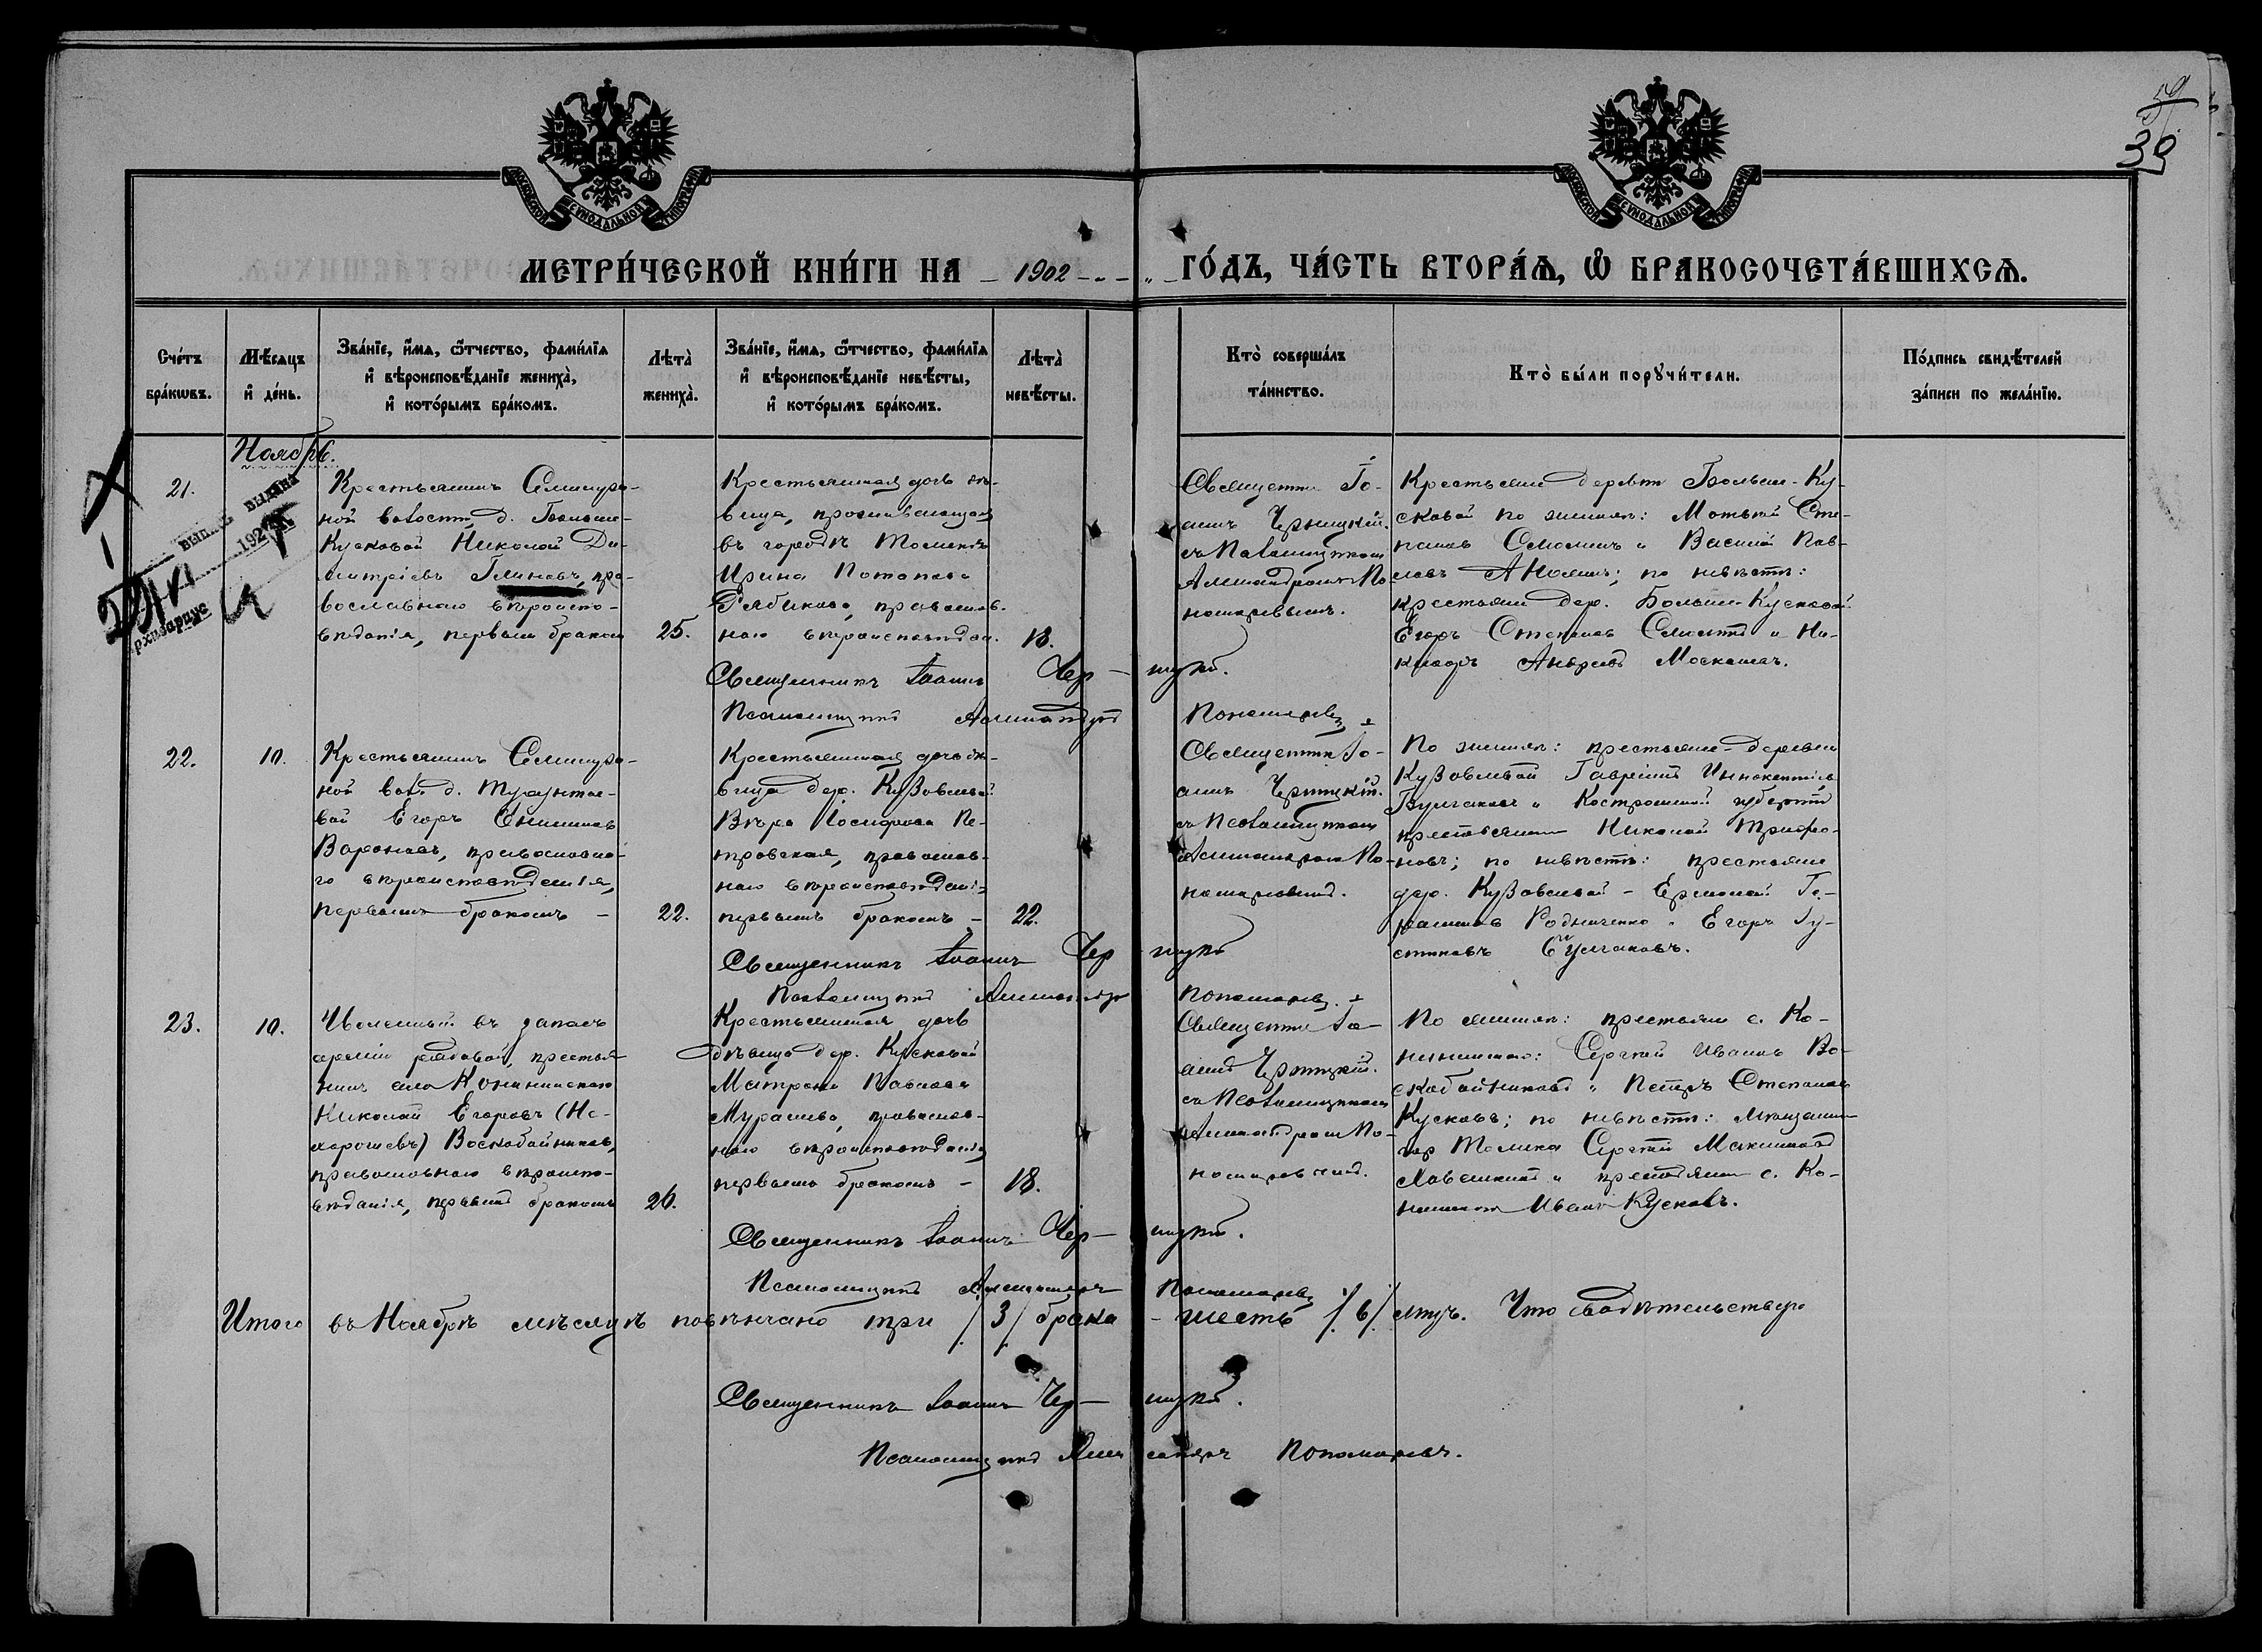 59
39
МОСКОВСКОЙ СѴНОДАЛЬНОЙ ТИПОГРАФІИ
МОСКОВСКОЙ СѴНОДАЛЬНОЙ ТИПОГРАФІИ
МЕТРИ́ЧЕСКОЙ КНИ́ГИ НА 1902 ГО́ДЪ, ЧА́СТЬ ВТОРА́Ѧ, Ѽ БРАКОСОЧЕТА́ВШИХСѦ.
Сче́тъ бра́кѡвъ.
Мѣ́сѧцъ и҆ де́нь.
Зва́нїе, и҆́мѧ, ѻ҆́тчество, фами́лїѧ
и҆ вѣроисповѣ́данїе жениха̀,
и҆ кото́рымъ бра́комъ.
Лѣта̀ жениха̀.
Зва́нїе, и҆́мѧ, ѻ҆́тчество, фами́лїѧ
и҆ вѣроисповѣ́данїе невѣ́сты,
и҆ кото́рымъ бра́комъ.
Лѣта̀ невѣ́сты.
Кто̀ соверша́лъ
та́инство.
Кто̀ бы́ли порꙋчи́тели.
По́дпись свидѣ́телей
за́писи по жела́нїю.
Ноябрь.
выпись выдана
192
рхивариус
21.
Крестьянинъ Семилуж-
ной волости, д. Больше-
Кусковой Николай Ди-
митріевъ Глиновъ, пра-
вославнаго вѣроиспо-
вѣданія, первымъ бракомъ
25.
Крестьянская дочь дѣ-
вица, проживающая
въ городѣ Томскѣ
Ирина Потапова
Рябикова, православ-
наго вѣроисповѣдан.
18.
Священникъ Іо-
аннъ Черницкій
съ Псаломщикомъ
Александромъ По-
номаревымъ.
Крестьяне деревни Больше-Ку-
сковой по женихѣ: Матвѣй Сте-
пановъ и Василій Пав-
ловъ; по невѣстѣ:
крестьяне дер. Больше-Кусковой
Егоръ Степановъ и Ни-
Андреевъ Москалевъ.
Священникъ Іоаннъ Черницкій.
Псаломщикъ Александръ Пономаревъ
22.
10.
Крестьянинъ Семилуж-
ной вол. д. Турунтае-
вой Егоръ
Вороновъ, православна-
го вѣроисповѣданія,
первымъ бракомъ –
22.
Крестьянская дочь дѣ-
вица дер. Кузовлевой
Вѣра Іосифова Пе-
тровская, православ-
наго вѣроисповѣданія
первымъ бракомъ –
22.
Священникъ Іо-
аннъ Черницкій
съ Псаломщикомъ
Александромъ По-
номаревымъ.
По женихѣ: крестьяне деревни
Кузовлевой Гавріилъ Иннокентіевъ
Булгаковъ и Костромской губерніи
крестьянинъ Николай Трифо-
новъ; по невѣстѣ: крестьяне
дер. Кузовлевой – Ермолай Ге-
расимовъ Родниченко и Егоръ Гу-
стиновъ Булгаковъ.
Священникъ Іоаннъ Черницкій
Псаломщикъ Александръ Пономаревъ.
23.
10.
Уволенный въ запасъ
арміи рядовой, крестья-
нинъ села Конининскаго
Николай Егоровъ (Не-
хорошевъ) Воскобойниковъ,
православнаго вѣроиспо-
вѣданія, первымъ бракомъ
26.
Крестьянская дочь
дѣвица дер. Кусковой
Матрона Павлова
Мурашева, православ-
наго вѣроисповѣданія,
первымъ бракомъ –
18.
Священникъ Іо-
аннъ Черницкій.
съ Псаломщикомъ
Александромъ По-
номаревымъ.
По женихѣ: крестьяне с. Ко-
нининскаго: Сергѣй Ивановъ Во-
скобойниковъ и Петръ Степановъ
Кусковъ; по невѣстѣ: мѣщанинъ
гор. Томска Сергѣй Максимовъ
и крестьянинъ с. Ко-
Иванъ Кусковъ.
Священникъ Іоаннъ Черницкій.
Псаломщикъ Александръ Пономаревъ
Итого въ Ноябрѣ мѣсяцѣ повѣнчано три /3/ брака – шесть /6/ лицъ. Что свидѣтельствую
Священникъ Іоаннъ Черницкій.
Псаломщикъ Александръ Пономаревъ.